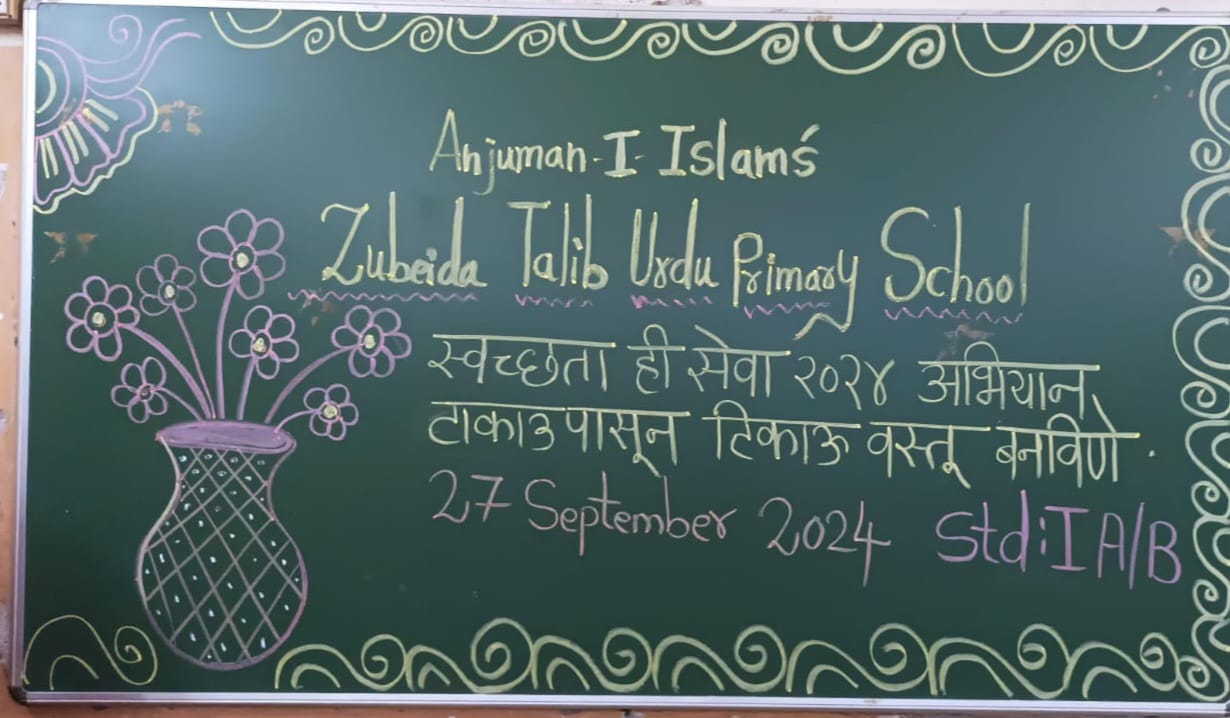 Anjuman-I-Islam's
Zubeida Talib Urdu Primary School
स्वच्छता ही सेवा २०२४ अभियान
टाकाउपासून टिकाऊ वस्तू बनविणे.
27 September 2024 Std:I A/B